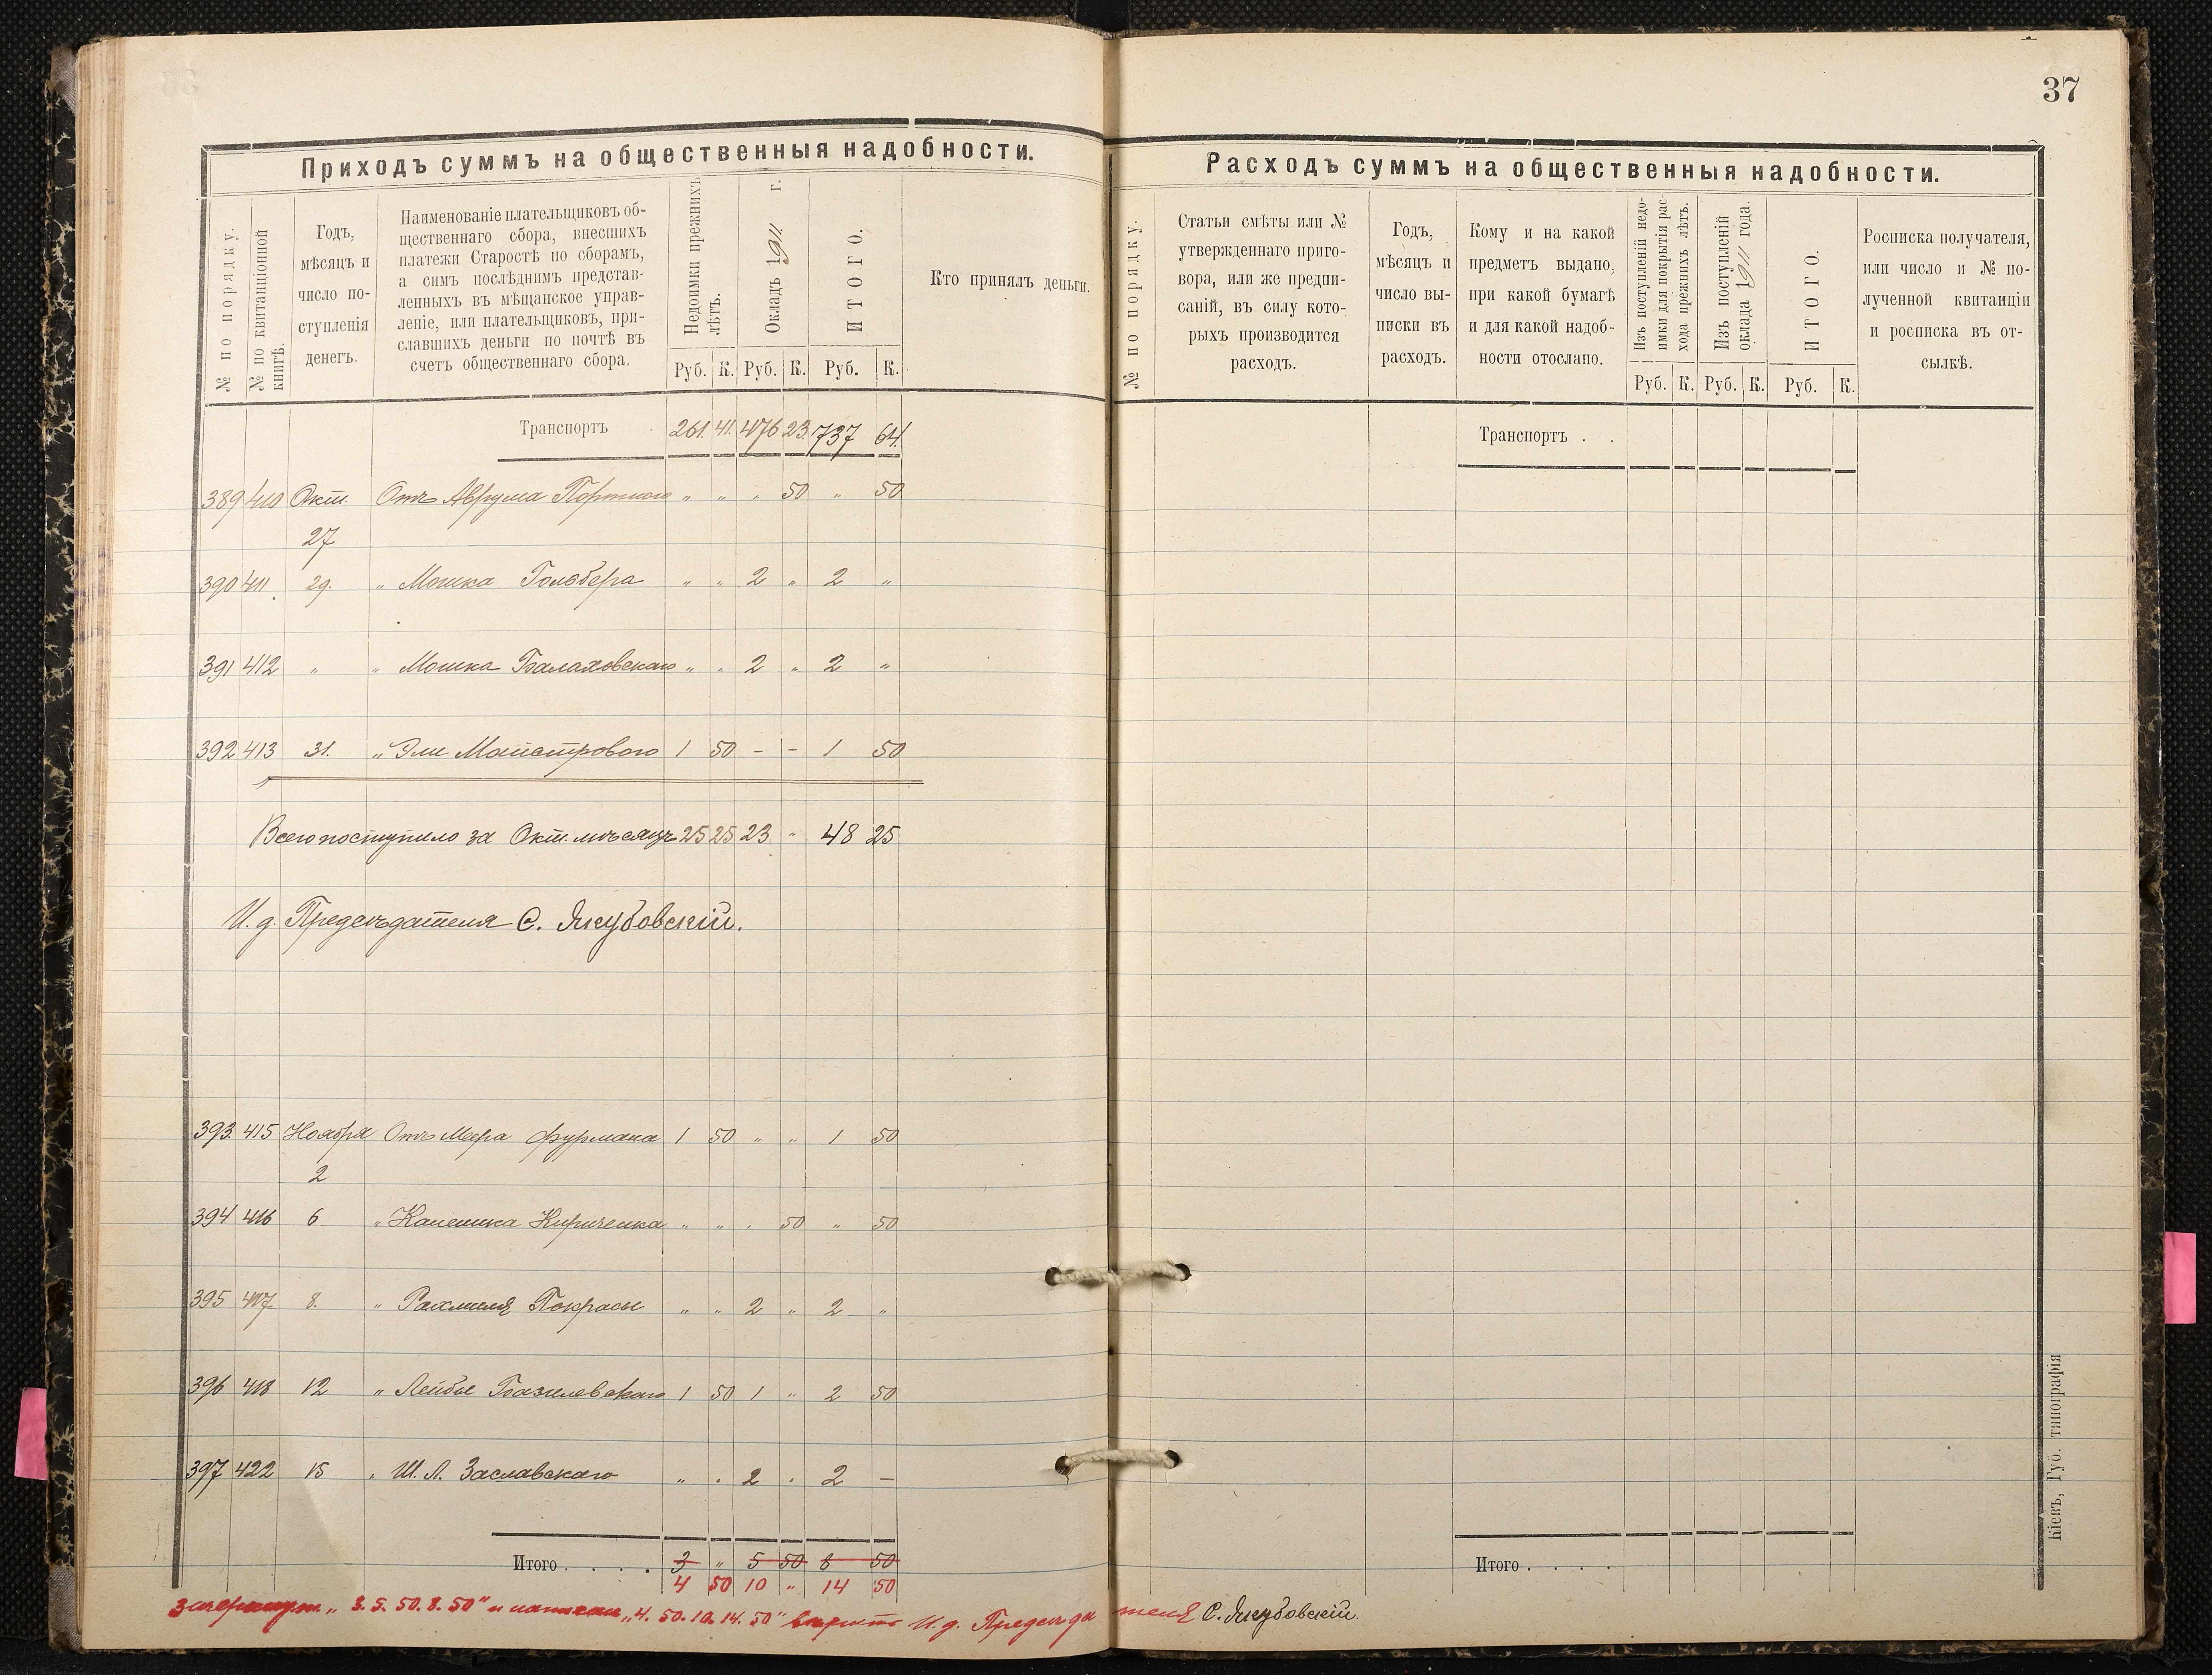 37
Приходъ суммъ на общественныя надобности.
№ по порядку.
№ по квитанціонной книгѣ.
Годъ,
мѣсяцъ и
число по-
ступленія
денегъ.
Наименованіе плательщиковъ об-
щественнаго сбора, внесшихъ
платежи Старостѣ по сборамъ,
а симъ послѣднимъ представ-
ленныхъ въ мѣщанское управ-
леніе, или плательщиковъ, при-
славшихъ деньги по почтѣ въ
счетъ общественнаго сбора.
Недоимки прежнихъ
лѣтъ.
Окладъ 1911 г.
ИТОГО.
Руб. К. Руб. К. Руб. К.
Кто принялъ деньги.
Транспортъ 261. 41. 476 23. 737 64.
389 410 Окт. Отъ Аврума Портного „ „ „ 50 „ 50
27
390 411. 29. „ Мошка Гольбера „ „ 2 „ 2 „
391 412 „ „ Мошка Балаховскаго „ „ 2 „ 2 „
392 413 31. „ Эли Майстрового 1 50 - - 1 50
Всего поступило за Окт. мѣсяцъ 25 25 23 „ 48 25
И. д. Предсѣдателя С. Якубовскій.
393. 415 Ноября Отъ Мера Фурмана 1 50 „ „ 1 50
2
394 416 6 „ Кириченка „ „ „ 50 „ 50
395 417 8. „ Рахмиля Покрасы „ „ 2 „ 2 „
396 418 12 „ Лейбы Базилевскаго 1 50 1 „ 2 50
397 422 15 „ Ш. Л. Заславскаго „ „ 2 „ 2 —
Итого . . . . . 3 „ 5 50 8 50
4 50 10 „ 14 50
„ 3. 5. 50. 8. 50" и „4. 50. 10. 14. 50" И. д. Предсѣдателя С. Якубовскій.
Расходъ суммъ на общественныя надобности.
№ по порядку.
Статьи смѣты или №
утвержденнаго приго-
вора, или же предпи-
саній, въ силу кото-
рыхъ производится
расходъ.
Годъ,
мѣсяцъ и
число вы-
писки въ
расходъ.
Кому и на какой
предметъ выдано,
при какой бумагѣ
и для какой надоб-
ности отослано.
Изъ поступленій недо-
имки для покрытія рас-
хода прежнихъ лѣтъ.
Изъ поступленій
оклада 1911 года.
ИТОГО.
Руб. К. Руб. К. Руб. К.
Росписка получателя,
или число и № по-
лученной квитанціи
и росписка въ от-
сылкѣ.
Транспортъ . .
Итого . . . .
Кіевъ, Губ. типографія